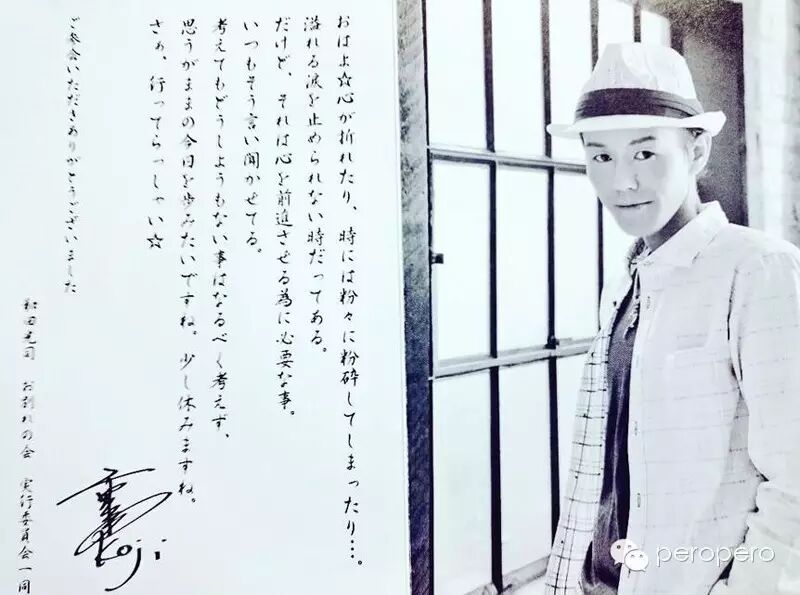 おはよ☆心が折れたり、時には粉々に粉砕してしまったり…。
溢れる涙を止められない時だってある。
だけど、それは心を前進させる為に必要な事。
いつもそう言い聞かせてる。
考えてもどうしようもない事はなるべく考えず、
思うがままの今日を歩みたいですね。少し休みますね。
さぁ、行ってらっしゃい☆
ご参会いただきありがとうございました
和田光司 お別れの会 実行委員会一同
Koji
peropero